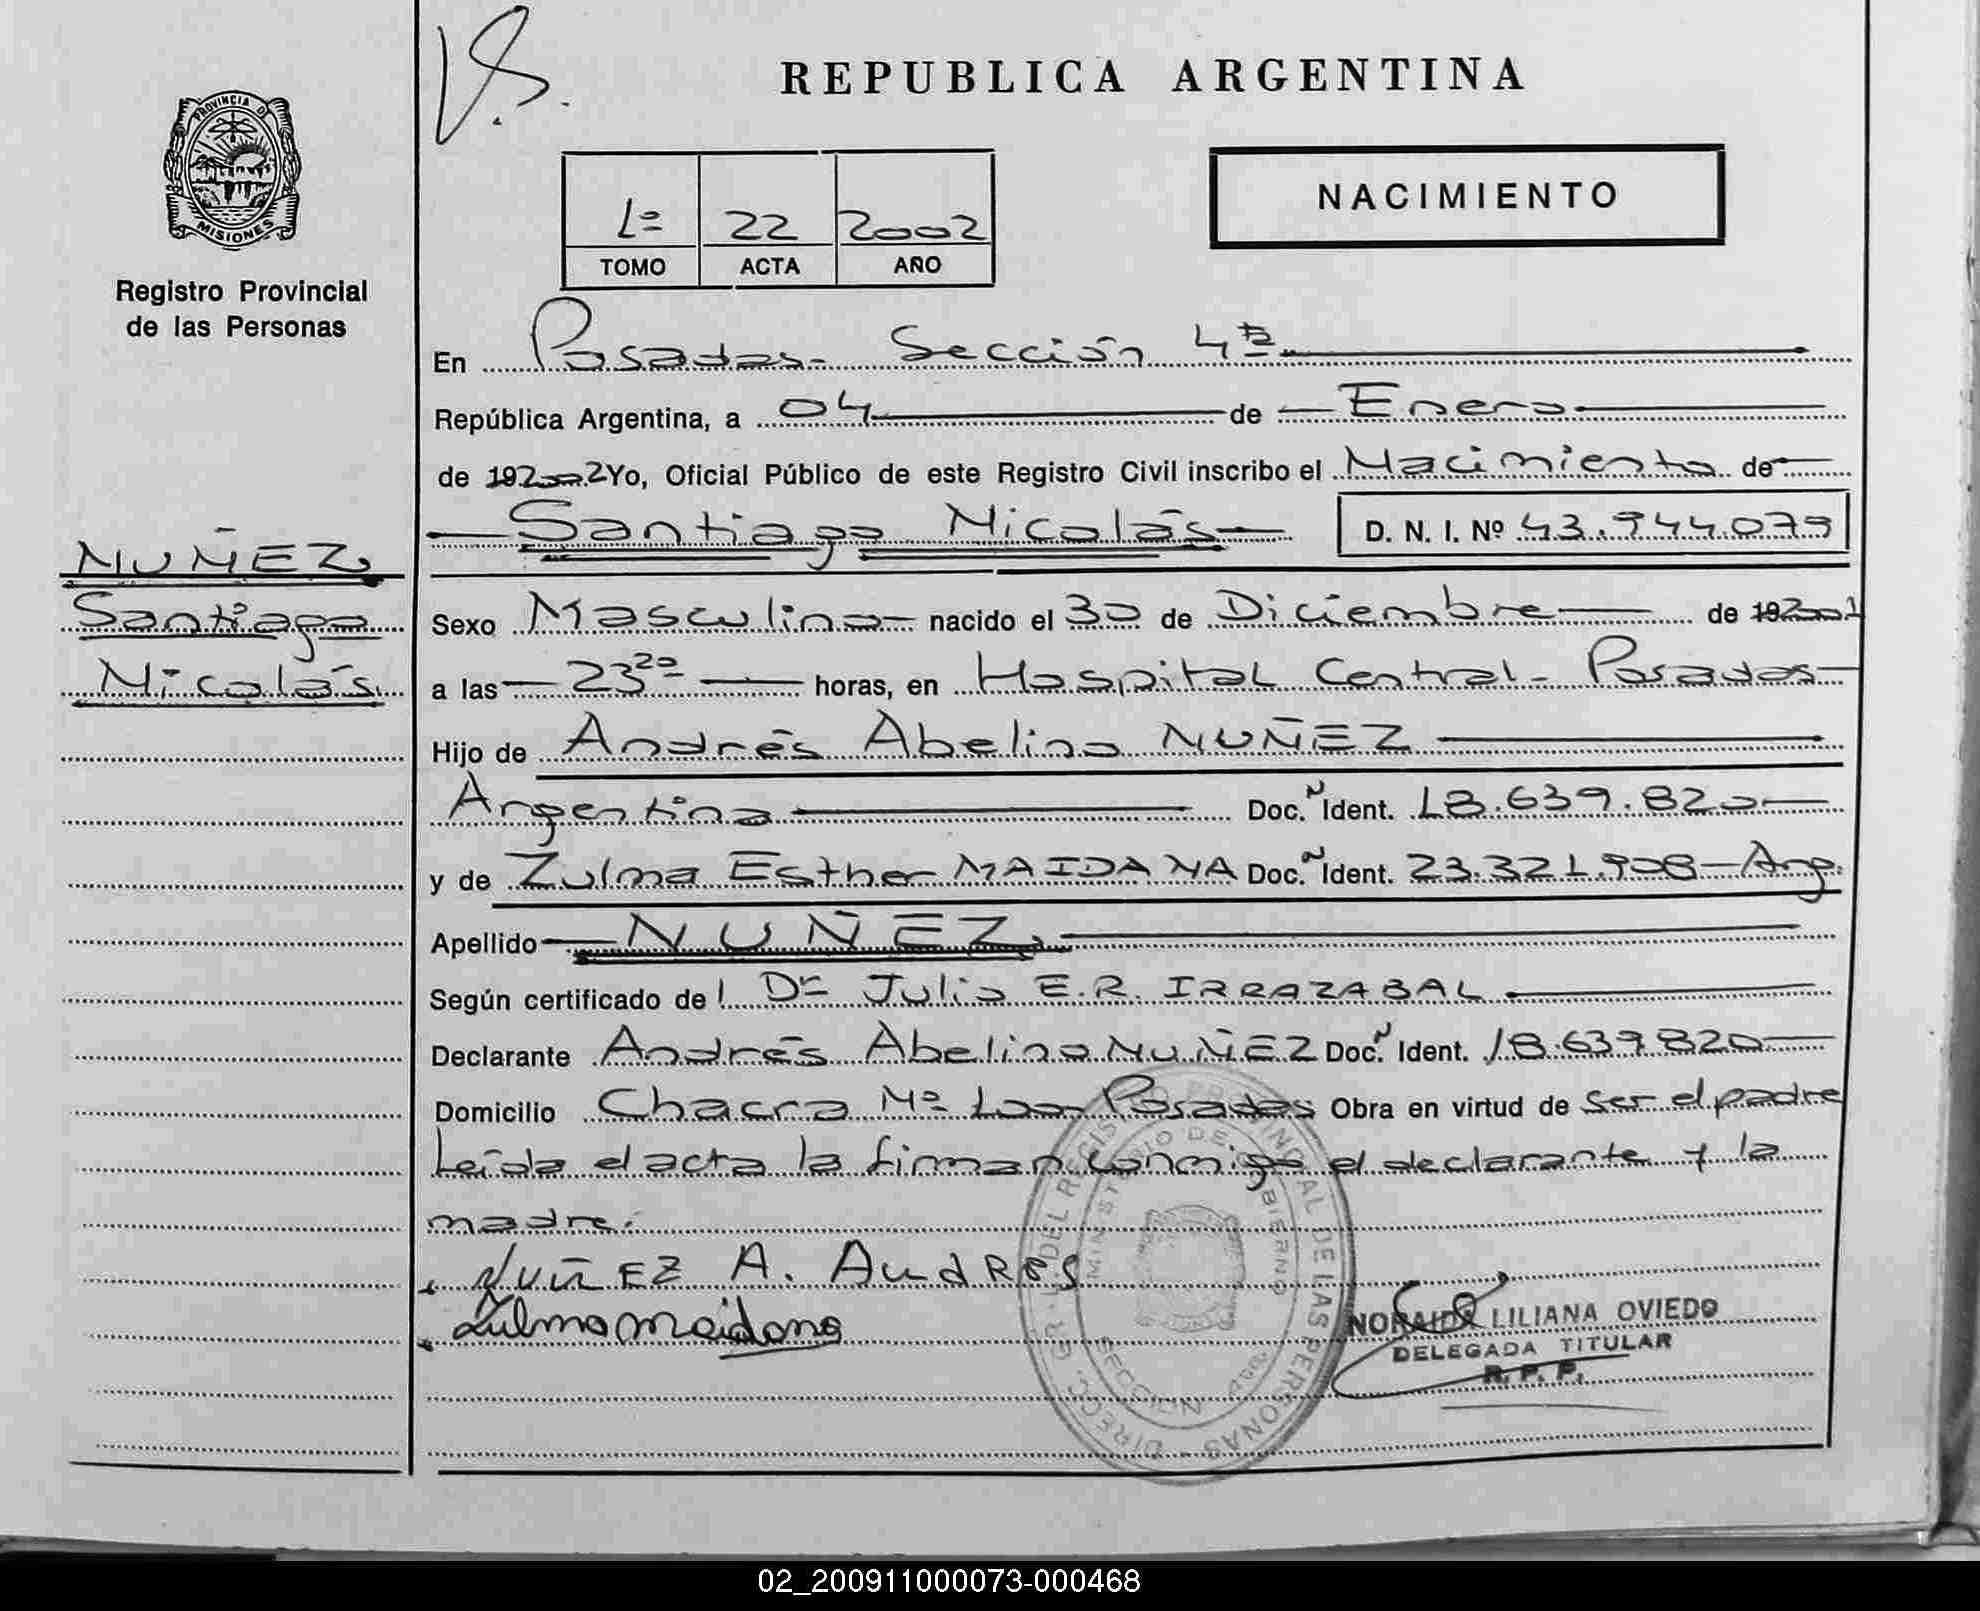 V.S.
REPUBLICA ARGENTINA
PROVINCIA DE MISIONES
Registro Provincial
de las Personas
1º 22 2002
TOMO ACTA AÑO
NACIMIENTO
En Posadas- Sección 4ª
República Argentina, a 04 de Enero
de 2002 Yo, Oficial Público de este Registro Civil inscribo el Nacimiento de
Santiago Nicolás D. N. I. Nº 43.944.079
NUÑEZ
Santiago
Nicolás
Sexo Masculino nacido el 30 de Diciembre de 2001
a las 23²⁰ horas, en Hospital Central- Posadas
Hijo de Andrés Abelino NUÑEZ
Argentina Doc. Ident. 18.639.820
y de Zulma Esther MAIDANA Doc. Ident. 23.321.908-Arg.
Apellido NUÑEZ
Según certificado de l Dr Julio E.R. IRRAZABAL
Declarante Andrés Abelino NUÑEZ Doc. Ident. 18.639820
Domicilio Chacra Nº 100 Posadas Obra en virtud de ser el padre
Leída el acta la firman conmigo el declarante y la
madre.
NUÑEZ A. AndRES
Zulma maidana
DIRECC. GR. DEL REGISTRO PROVINCIAL DE LAS PERSONAS
MINISTERIO DE GOBIERNO
SECCION
NORAIDA LILIANA OVIEDO
DELEGADA TITULAR
R. P. P.
02_200911000073-000468